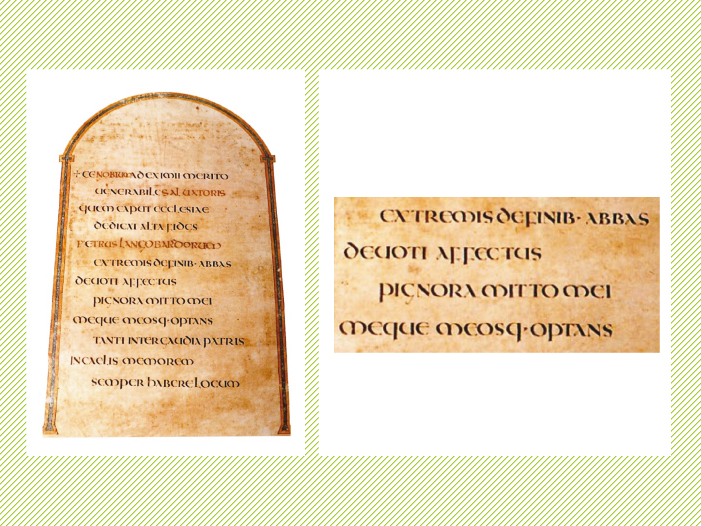 ✝ CENOBIUM AD EXIMII MERITO
UENERABILE SALUATORIS
QUEM CAPUT ECCLESIAE
DEDICAT ALTA FIDES
PETRUS LANGOBARDORUM
EXTREMIS DE FINIB· ABBAS
DEUOTI AFFECTUS
PIGNORA MITTO MEI
MEQUE MEOSQ· OPTANS
TANTI INTER GAUDIA PATRIS
IN CAELIS MEMOREM
SEMPER HABERE LOCUM
EXTREMIS DE FINIB· ABBAS
DEUOTI AFFECTUS
PIGNORA MITTO MEI
MEQUE MEOSQ· OPTANS